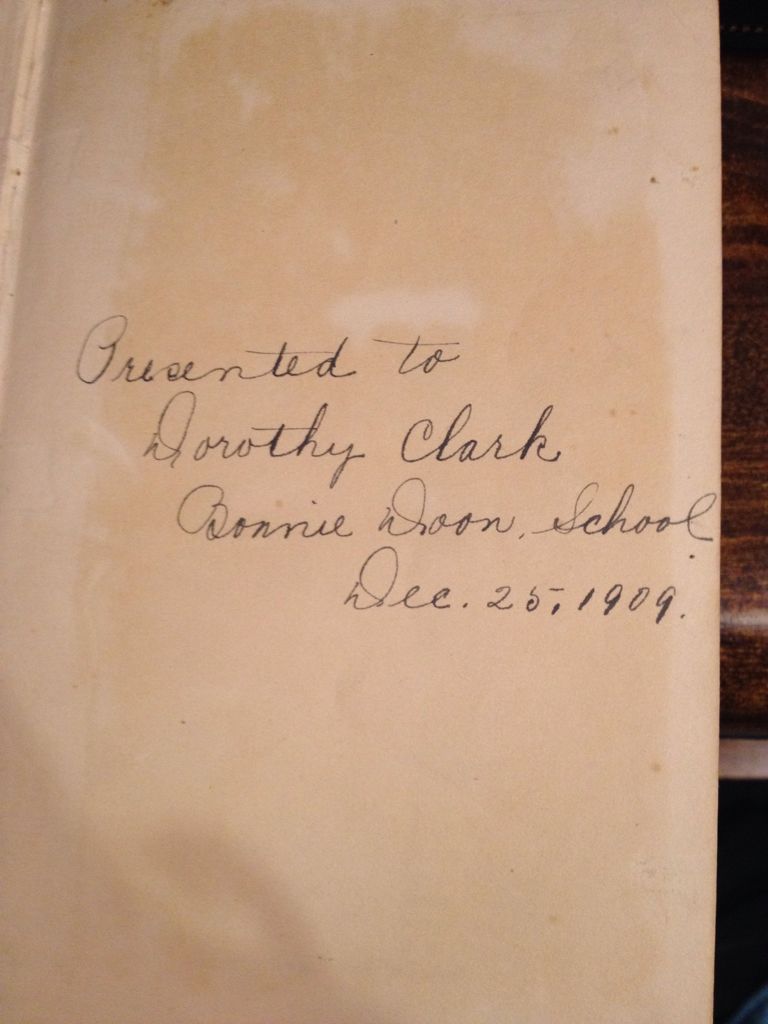 Presented to
Dorothy Clark
Bonnie Doon, School.
Dec. 25, 1909.